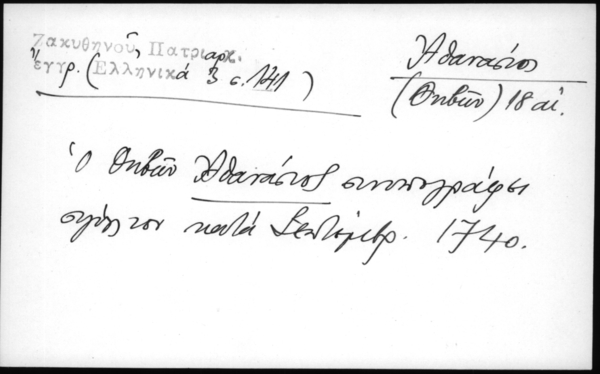 Ζακυθηνοῦ, Πατριαρχ.
ἔγγρ. (Ἑλληνικά 3 σ. 141)
Ἀθανάσιος
(Θηβῶν) 18 αἰ.
Ὁ Θηβῶν Ἀθανάσιος συνυπογράφει
κατά Σεπτέμβρ. 1740.